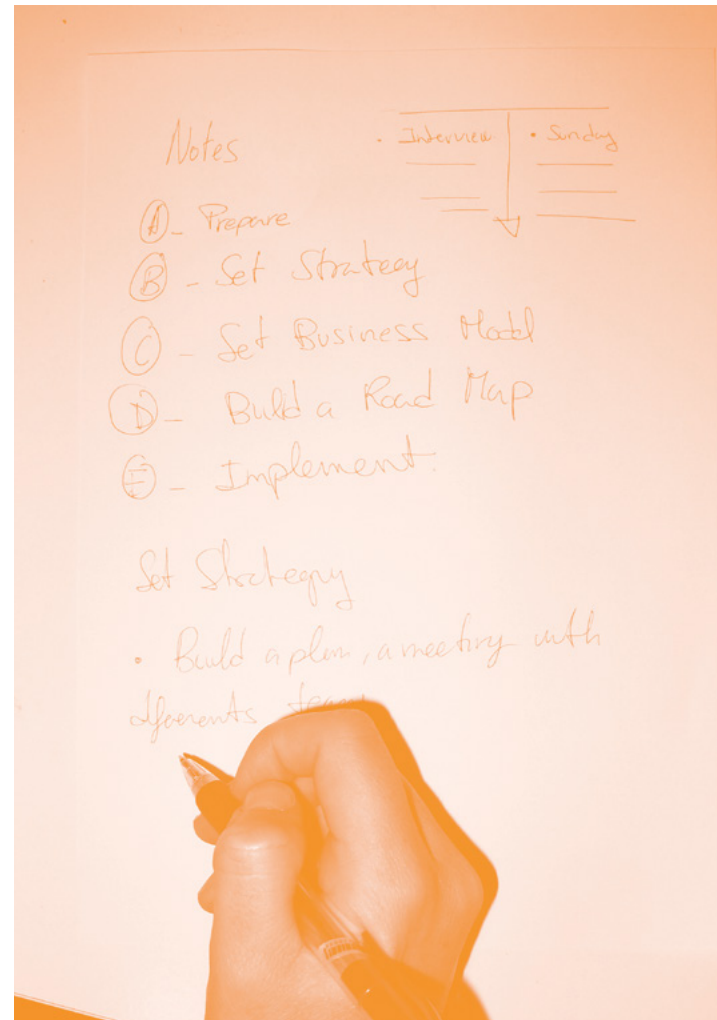 Notes
• Interview • Sunday
A - Prepare
B - Set Strategy
C - Set Business Model
D - Build a Road Map
E - Implement.
Set Strategy
• Build a plan, a meeting with
diferents